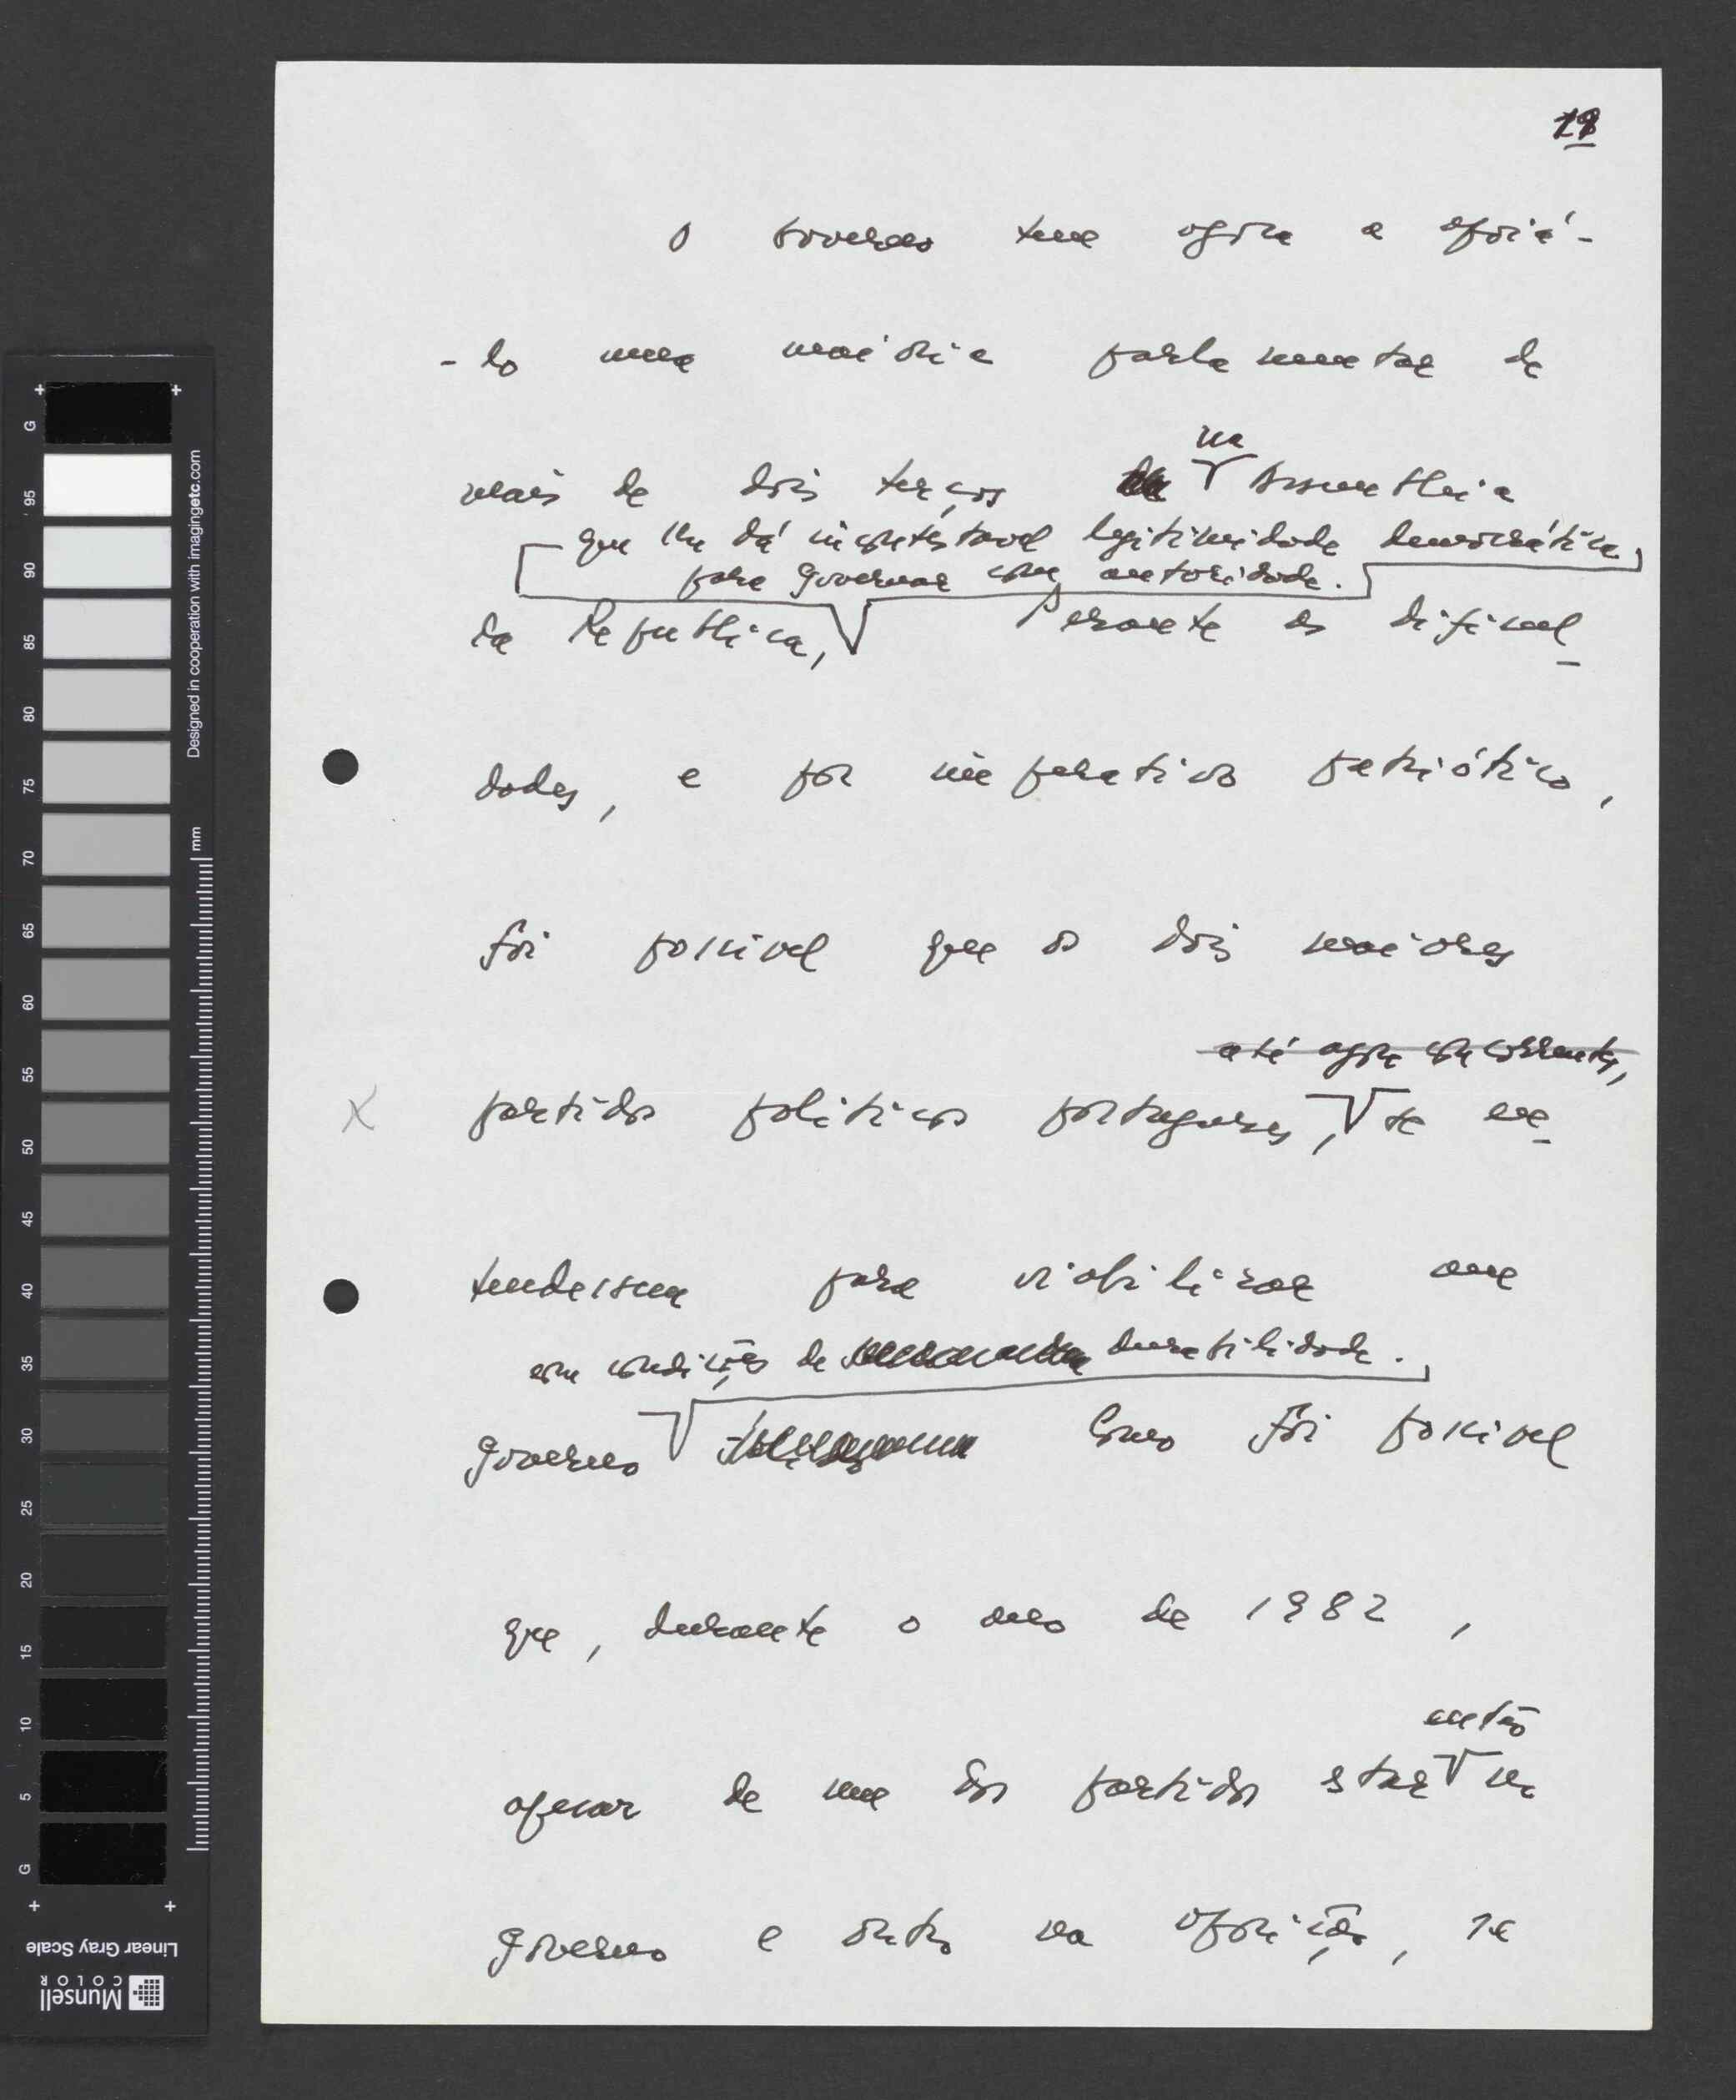 O Governo tem agora a apoiá-
-lo uma maioria parlamentar de
na
mais de dois terços Assembleia
que lhe dá incontestavel legitimidade democrática
para governar com autoridade.
da Republica, Perante as dificul
dades, e por imperativo patriótico,
foi possivel que os dois maiores
até agora concorrentes,
X partidos politicos portugueses, se en
tendessem para viabilizar um
em condições de durabilidade.
governo Como foi possivel
que, durante o ano de 1982,
então
apesar de um dos partidos estar no
governo e outro na oposição, se
G 95 90 85 80 75 70 65 60 55 50 45 40 35 30 25 20 15 10 5 G
Designed in cooperation with imagingetc.com
mm
Linear Gray Scale
Munsell
COLOR